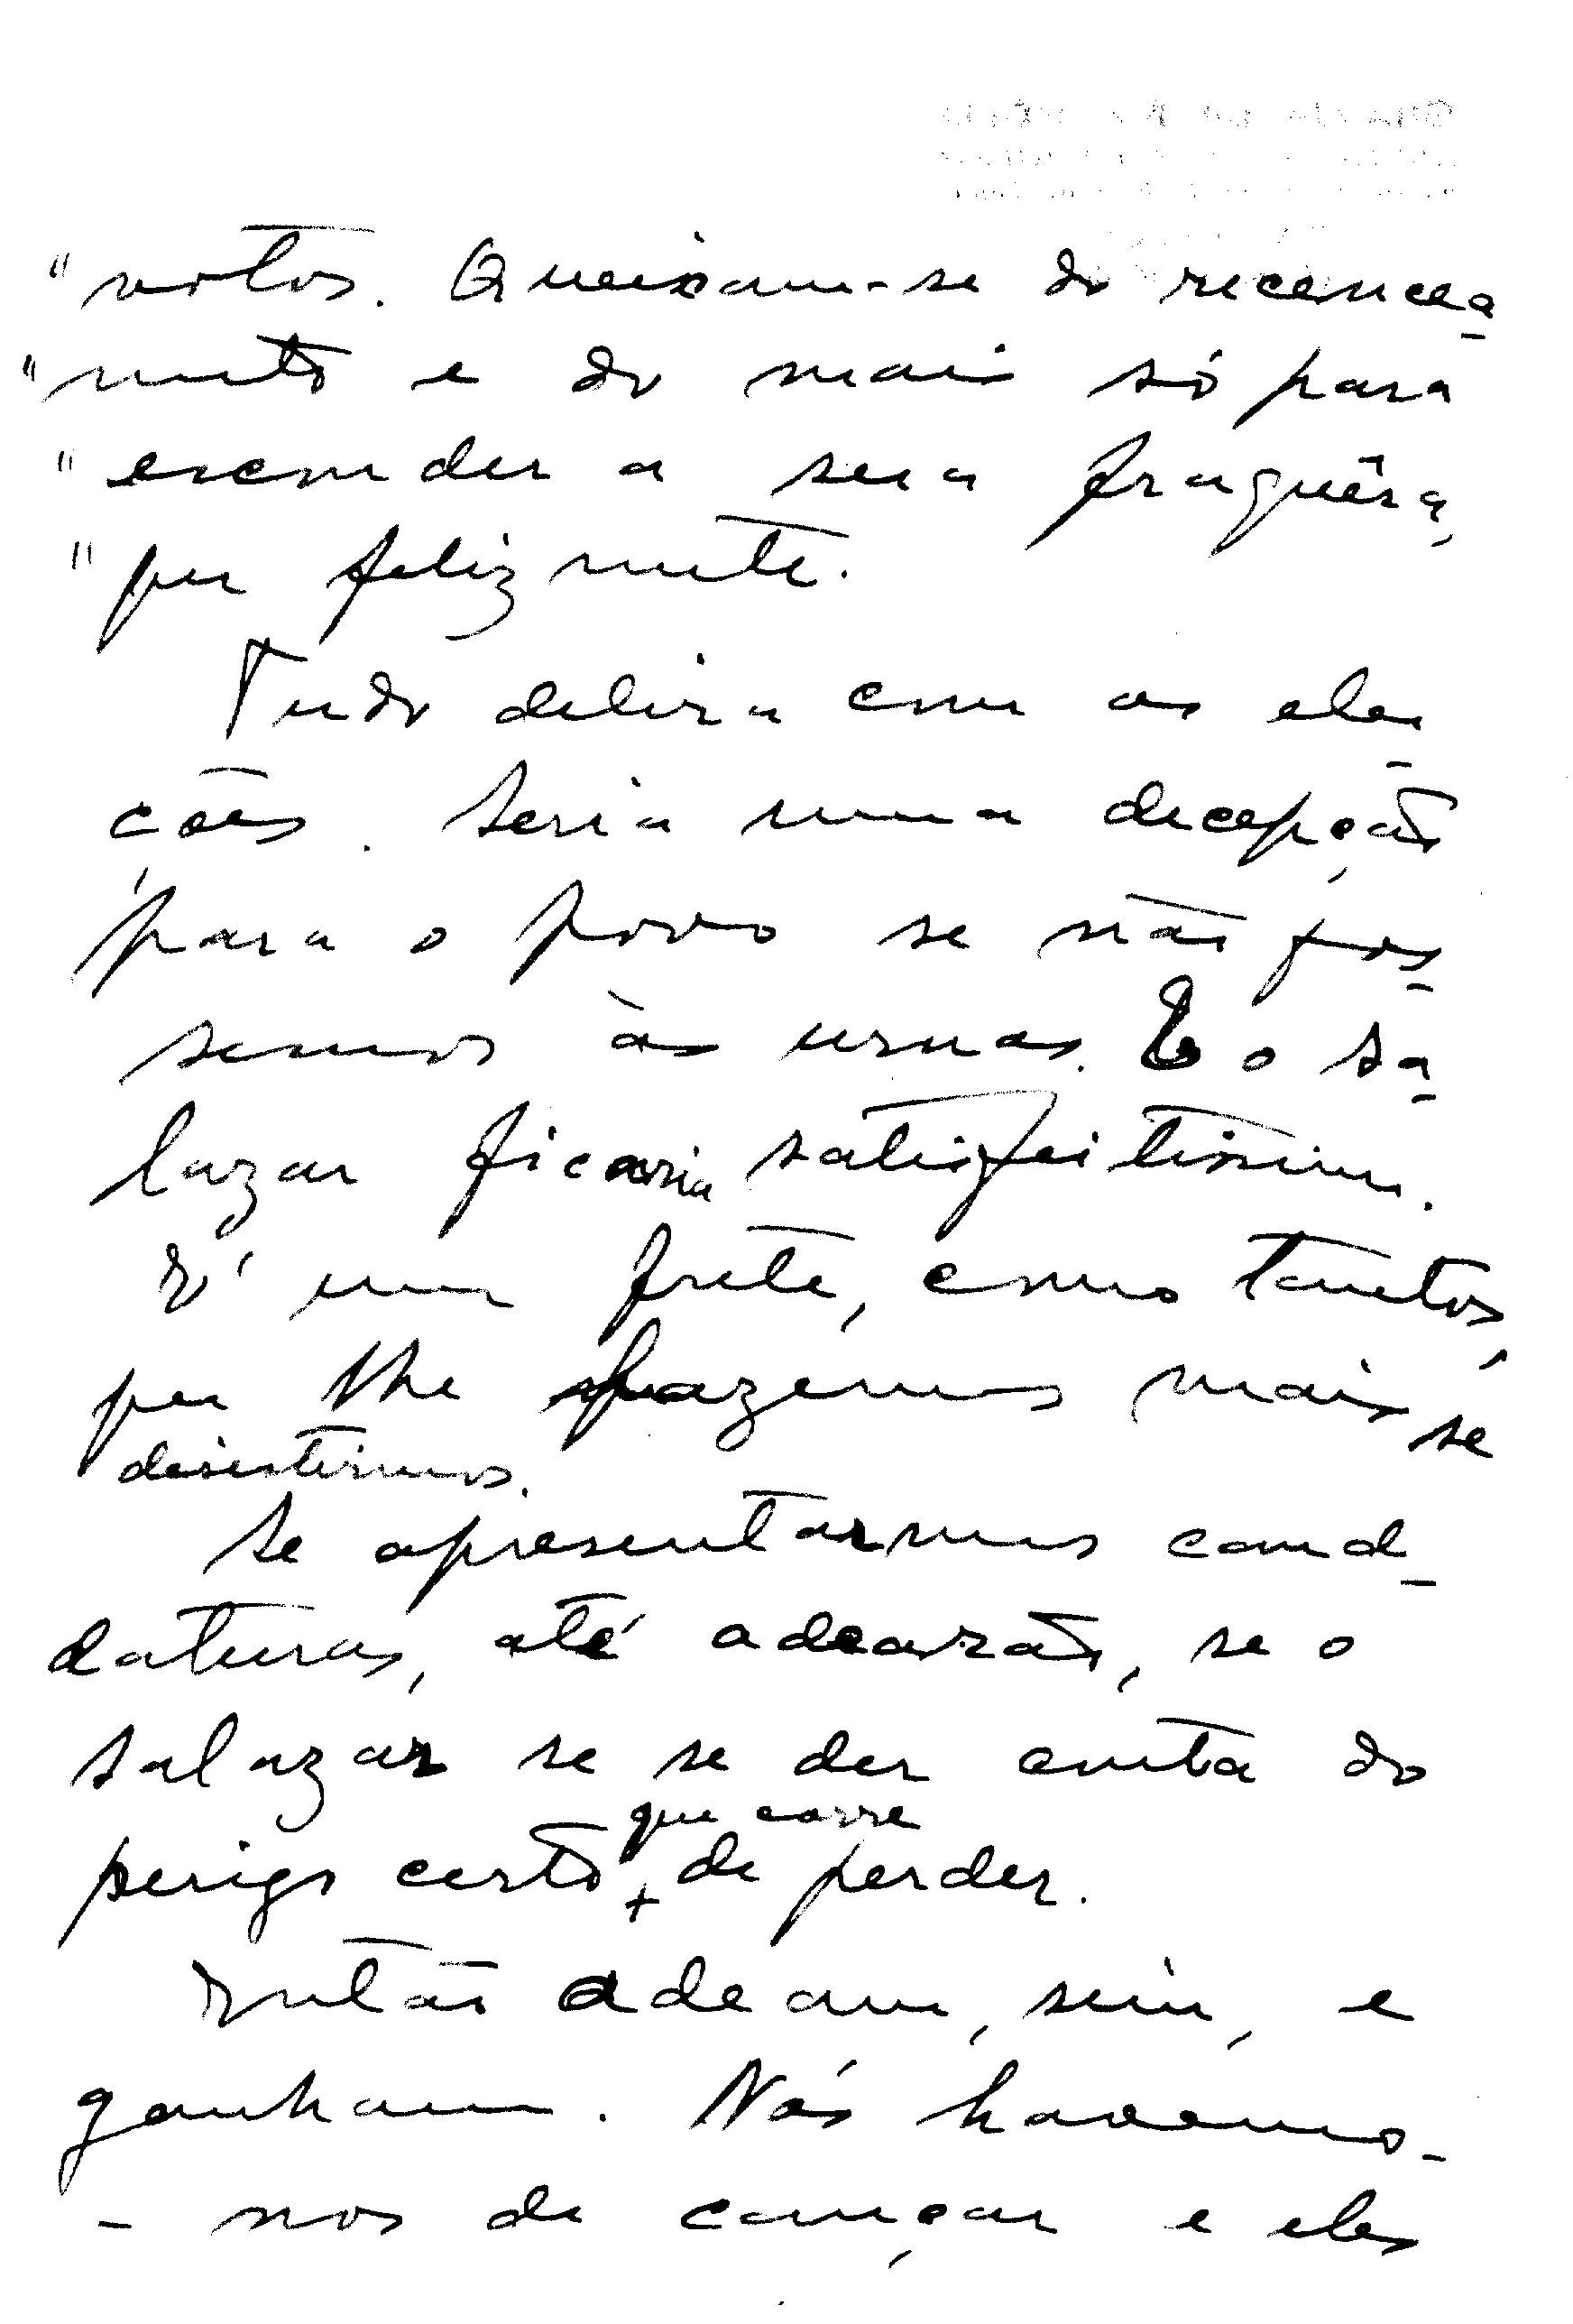 "votos. Queixam-se do recencea-
"mento e do mais só para
"esconder a sua fraquêsa,
"que felizmente.
Tudo delira com as elei-
ções. Seria uma decepção
para o povo se não fos-
semos às urnas. E o Sa-
lazar ficaria satisfeitissimo.
É um frete, como tantos,
que lhe fazemos mais se
desistirmos.
Se apresentarmos candi-
daturas, até adearão, se o
Salazar se se der conta do
que corre
perigo certo + de perder.
Então adeam, sim, e
ganham. Nós havemo-
-nos de cançar e eles